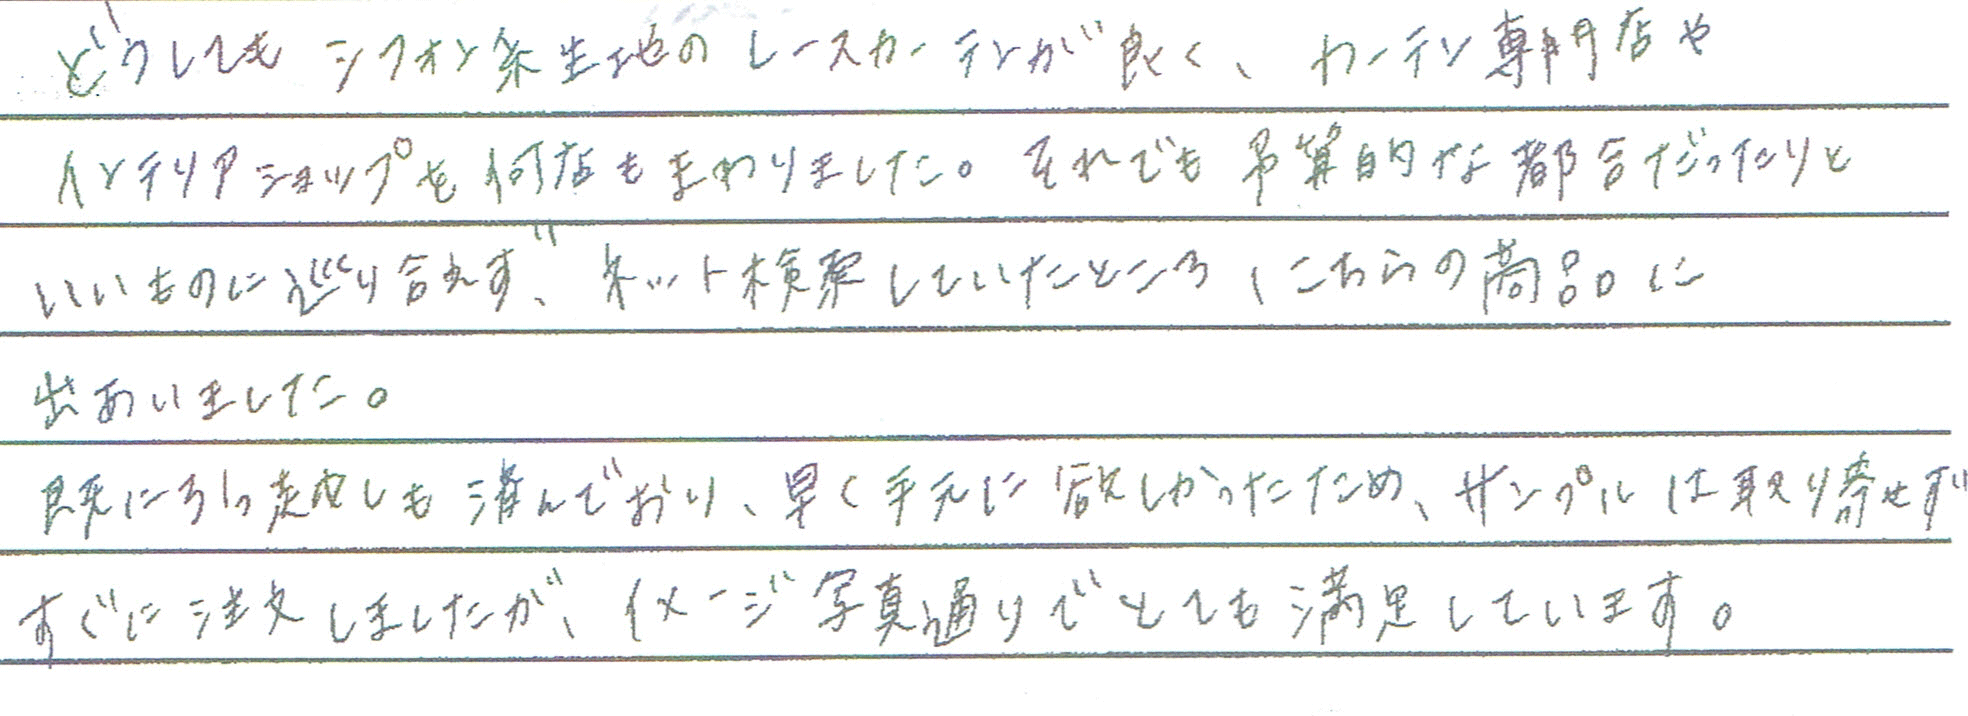 どうしても シフォン系生地のレースカーテンが良く、カーテン専門店や
インテリアショップを何店もまわりました。それでも予算的な都合だったりと
いいものに巡り合えず、ネット検索していたところ、こちらの商品に
出あいました。
既に引っ越しも済んでおり、早く手元に欲しかったため、サンプルは取り寄せず
すぐに注文しましたが、イメージ写真通りでとても満足しています。